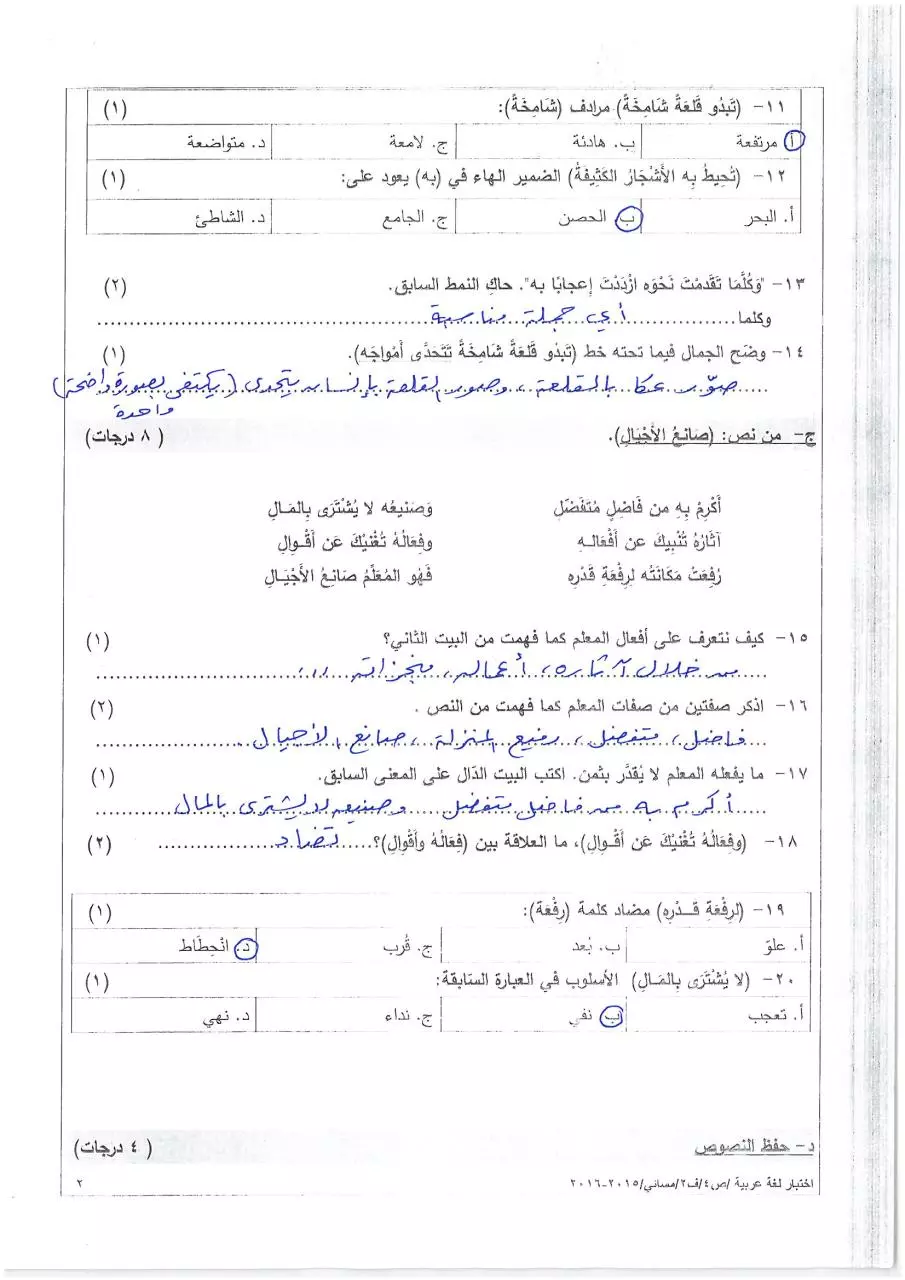 ١١- (تَبْدُو قَلعَةً شَامِخَةً) مرادف (شَامِخَةً): (١)
أ. مرتفعة ب. هادئة ج. لامعة د. متواضعة
١٢- (تُحِيطُ بِه الأَشْجَارُ الكَثِيفَةُ) الضمير الهاء في (به) يعود على: (١)
أ. البحر ب. الحصن ج. الجامع د. الشاطئ
١٣- "وَكُلَّمَا تَقَدَّمْتَ نَحْوَه ازْدَدْتَ إعجابًا به". حاكِ النمط السابق. (٢)
وكلما ................ أي جملة مناسبة ................
١٤- وضّح الجمال فيما تحته خط (تَبْدُو قَلْعَةً شَامِخَةً تَتَحَدَّى أَمْوَاجَه). (١)
صوّر عكا بالقلعة، وصور القلعة بإنسان يتحدى (يكتفى بصورة واضحة)
واحدة
ج- من نص: (صَانِعُ الأَجْيَالِ). (٨ درجات)
أَكْرِمْ بِهِ من فَاضِلٍ مُتَفَضِّلٍ وَصَنيعُه لا يُشْتَرَى بِالمَـالِ
آثَارُهُ تُنْبِيكَ عن أَفْعَالـهِ وفِعَالُهُ تُغْنِيْكَ عَن أَقْـوالِ
رُفِعَتْ مَكَانَتُه لرِفْعَةِ قَدْرِه فَهُو المُعَلِّمُ صَانِعُ الأَجْيَـالِ
١٥- كيف نتعرف على أفعال المعلم كما فهمت من البيت الثاني؟ (١)
من خلال آثاره، أعماله، منجزاته ،،،
١٦- اذكر صفتين من صفات المعلم كما فهمت من النص . (٢)
فاضل، متفضل، رفيع المنزلة، صانع الأجيال.
١٧- ما يفعله المعلم لا يُقدَّر بثمن. اكتب البيت الدّال على المعنى السابق. (١)
أكرم به من فاضل متفضل وصنيعه لا يشترى بالمال
١٨- (وفِعَالُهُ تُغْنِيْكَ عَن أَقْوالِ)، ما العلاقة بين (فِعَالُهُ وأَقْوالِ)؟..... تضاد ................ (٢)
١٩- (لرِفْعَةِ قَـدْرِه) مضاد كلمة (رِفْعَة): (١)
أ. علوّ ب. بُعد ج. قُرب د. انْحِطَاط
٢٠- (لا يُشْتَرَى بِالمَـالِ) الأسلوب في العبارة السّابقة: (١)
أ. تعجب ب. نفي ج. نداء د. نهي
د- حفظ النصوص (٤ درجات)
اختبار لغة عربية /ص٤/ف٢/مسائي/٢٠١٥-٢٠١٦ ٢